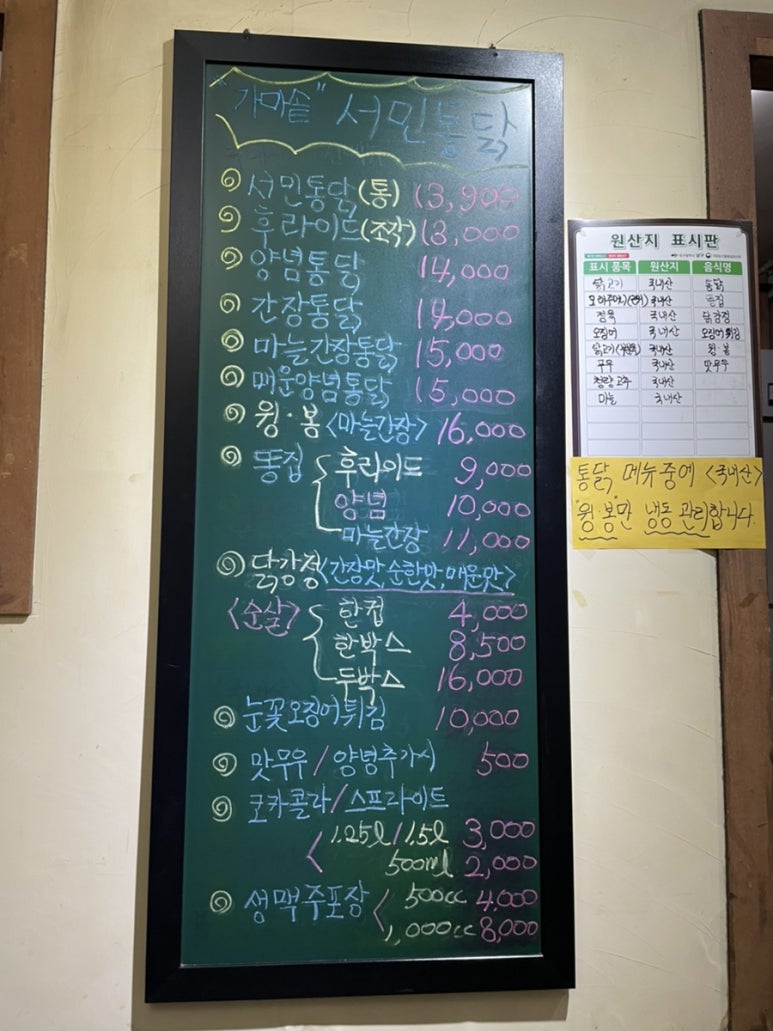 "가마솥" 서민통닭
서민통닭(통) 13,900
후라이드(조각) 13,000
양념통닭 14,000
간장통닭 14,000
마늘간장통닭 15,000
매운양념통닭 15,000
윙·봉<마늘간장> 16,000
똥집 후라이드 9,000
양념 10,000
마늘간장 11,000
닭강정<간장맛,순한맛,매운맛>
<순살> 한컵 4,000
한박스 8,500
두박스 16,000
눈꽃오징어튀김 10,000
맛무우/양념추가시 500
코카콜라/스프라이트
1.25l/1.5l 3,000
500ml 2,000
생맥주포장 500cc 4,000
1,000cc 8,000
원산지 표시판
표시 품목 원산지 음식명
닭고기 국내산 통닭
국내산 똥집
정육 국내산 닭강정
오징어 국내산 오징어튀김
닭고기 국내산 윙·봉
무우 국내산 맛무우
청량고추 국내산
마늘 국내산
통닭 메뉴중에 <국내산>
윙·봉만 냉동 관리합니다.